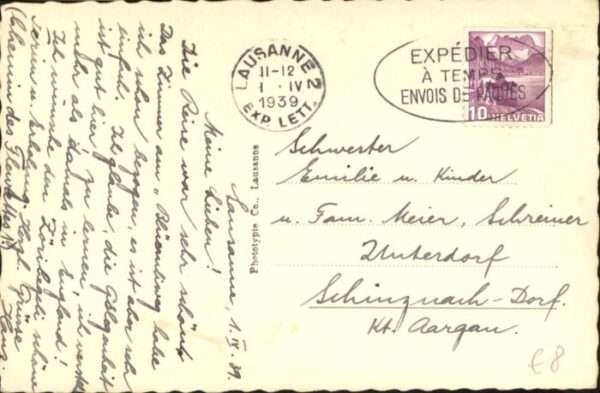 LAUSANNE 2
11-12
1 · IV
1939
EXP. LETT.
EXPÉDIER
À TEMPS
ENVOIS DE PAQUES
10 HELVETIA
Schwester
Emilie u. Kinder
u. Fam. Meier, Schreiner
Unterdorf
Schinznach-Dorf.
Kt. Aargau.
€8
Phototypie Co., Lausanne
Lausanne, 1. IV. 39.
Meine Lieben!
Die Reise war sehr schön
Das Zimmer am "Blüemliweg" habe
ich schon bezogen, es ist aber sehr
einfach. Ich glaube, die Gelegenheit
ist gut hier zu lernen, ich verstehe
mehr als damals in England!
Ich wünsche den schöne
Ferien u. Erholung. Herzl. Grüsse
Chemin des Hans.